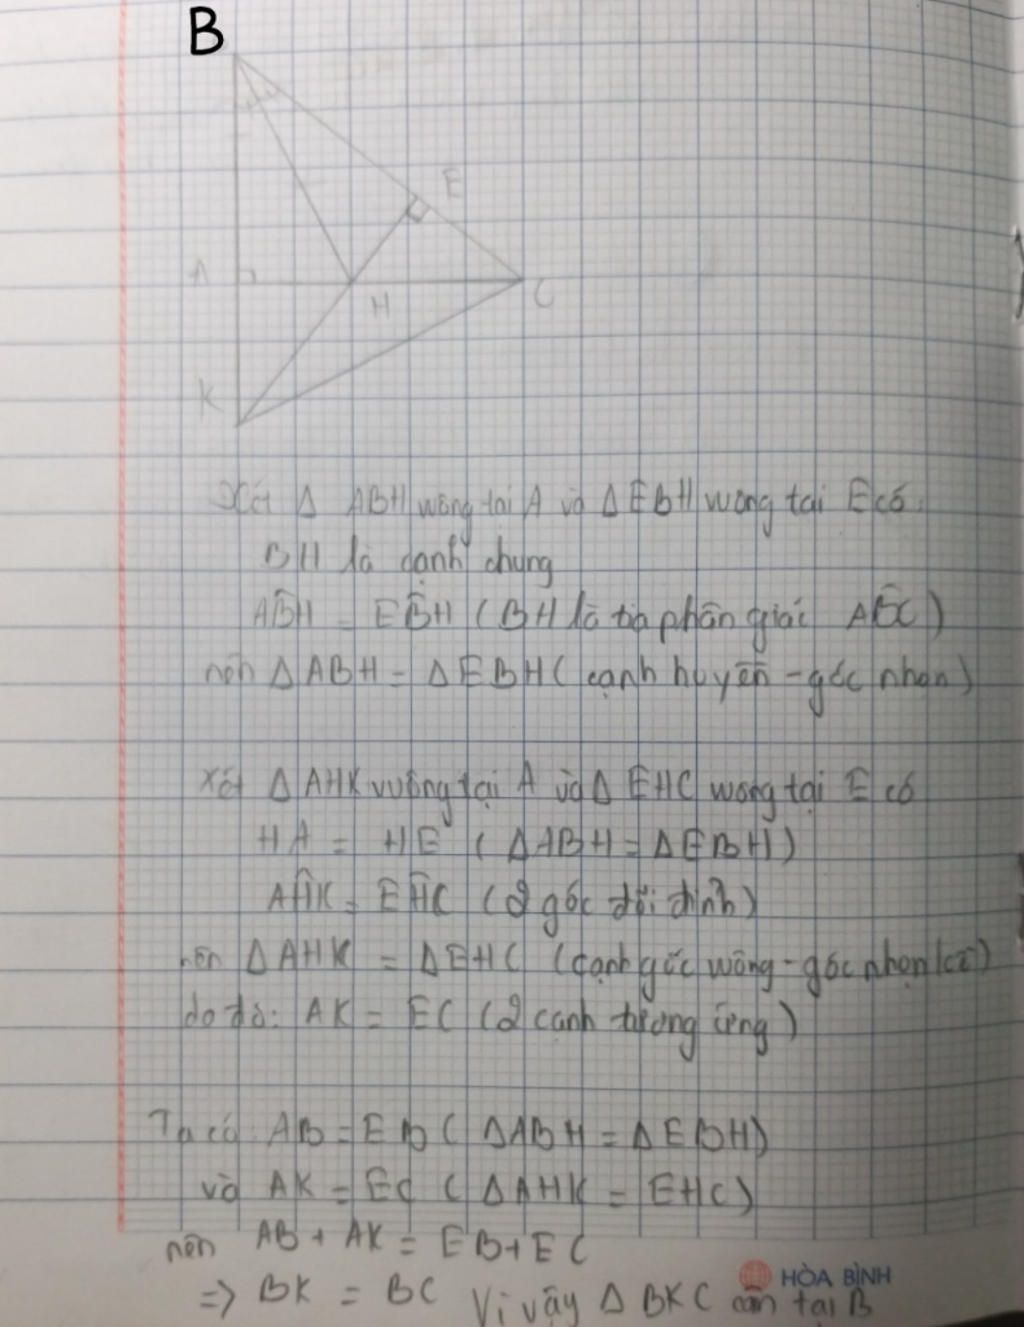 B
E
A
H
C
K
Xét Δ ABH vuông tại A và Δ EBH vuông tại E có:
BH là cạnh chung
AB̂H = EB̂H ( BH là tia phân giác AB̂C )
nên Δ ABH = Δ EBH ( cạnh huyền - góc nhọn )
Xét Δ AHK vuông tại A và Δ EHC vuông tại E có
HA = HE ( ΔABH = ΔEBH )
AĤK = EĤC ( 2 góc đối đỉnh )
nên Δ AHK = Δ EHC ( cạnh góc vuông - góc nhọn kề )
do đó: AK = EC ( 2 cạnh tương ứng )
Ta có: AB = EB ( ΔABH = ΔEBH )
và AK = EC ( ΔAHK = EHC )
nên AB + AK = EB + EC
HÒA BÌNH
=> BK = BC Vì vậy Δ BKC cân tại B